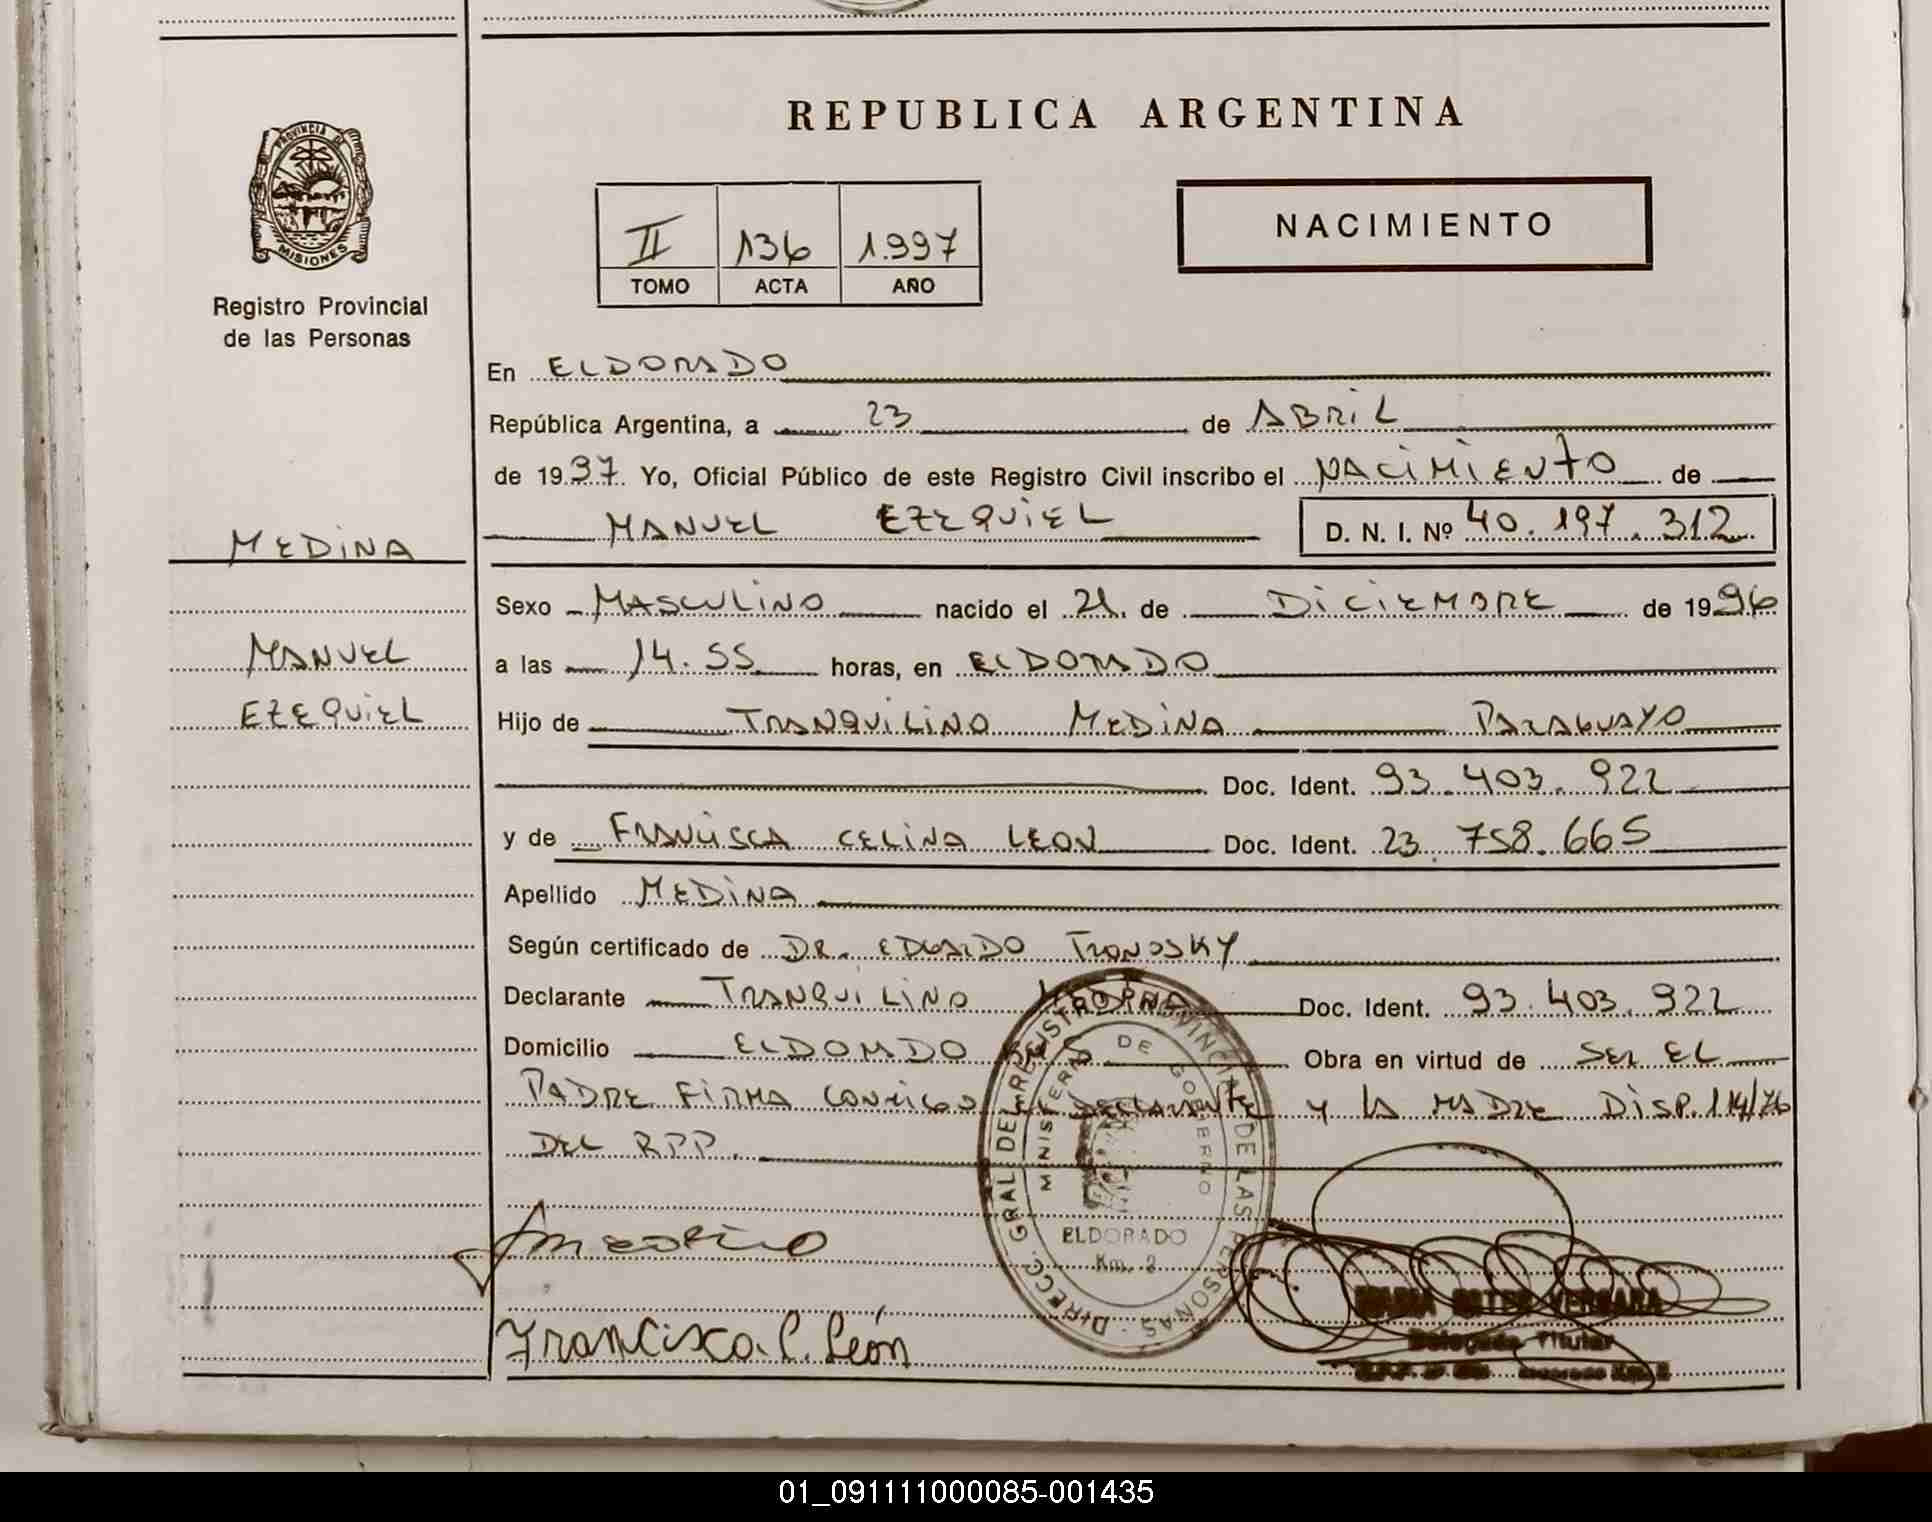 REPUBLICA ARGENTINA
PROVINCIA DE
MISIONES
Registro Provincial
de las Personas
II 136 1.997
TOMO ACTA AÑO
NACIMIENTO
En ELDORADO
República Argentina, a 23 de ABRIL
de 1997 Yo, Oficial Público de este Registro Civil inscribo el NACIMIENTO de
MANUEL EZEQUIEL D. N. I. Nº 40.197.312
MEDINA
MANUEL
EZEQUIEL
Sexo MASCULINO nacido el 21 de DICIEMBRE de 1996
a las 14.55 horas, en ELDORADO
Hijo de TRANQUILINO MEDINA PARAGUAYO
Doc. Ident. 93.403.922
y de FRANCISCA CELINA LEON Doc. Ident. 23.758.665
Apellido MEDINA
Según certificado de DR. EDUARDO TRONOSKY
Declarante TRANQUILINO MEDINA Doc. Ident. 93.403.922
Domicilio ELDORADO MS Obra en virtud de SER EL
PADRE FIRMA CONMIGO EL DECLARANTE Y LA MADRE DISP. 114/76
DEL RPP.
DIRECC. GRAL DEL REGISTRO PROVINCIAL DE LAS PERSONAS
MINISTERIO DE GOBIERNO
ELDORADO
Km. 2
Francisca C. León
VERGARA
Delegada Titular
01_091111000085-001435